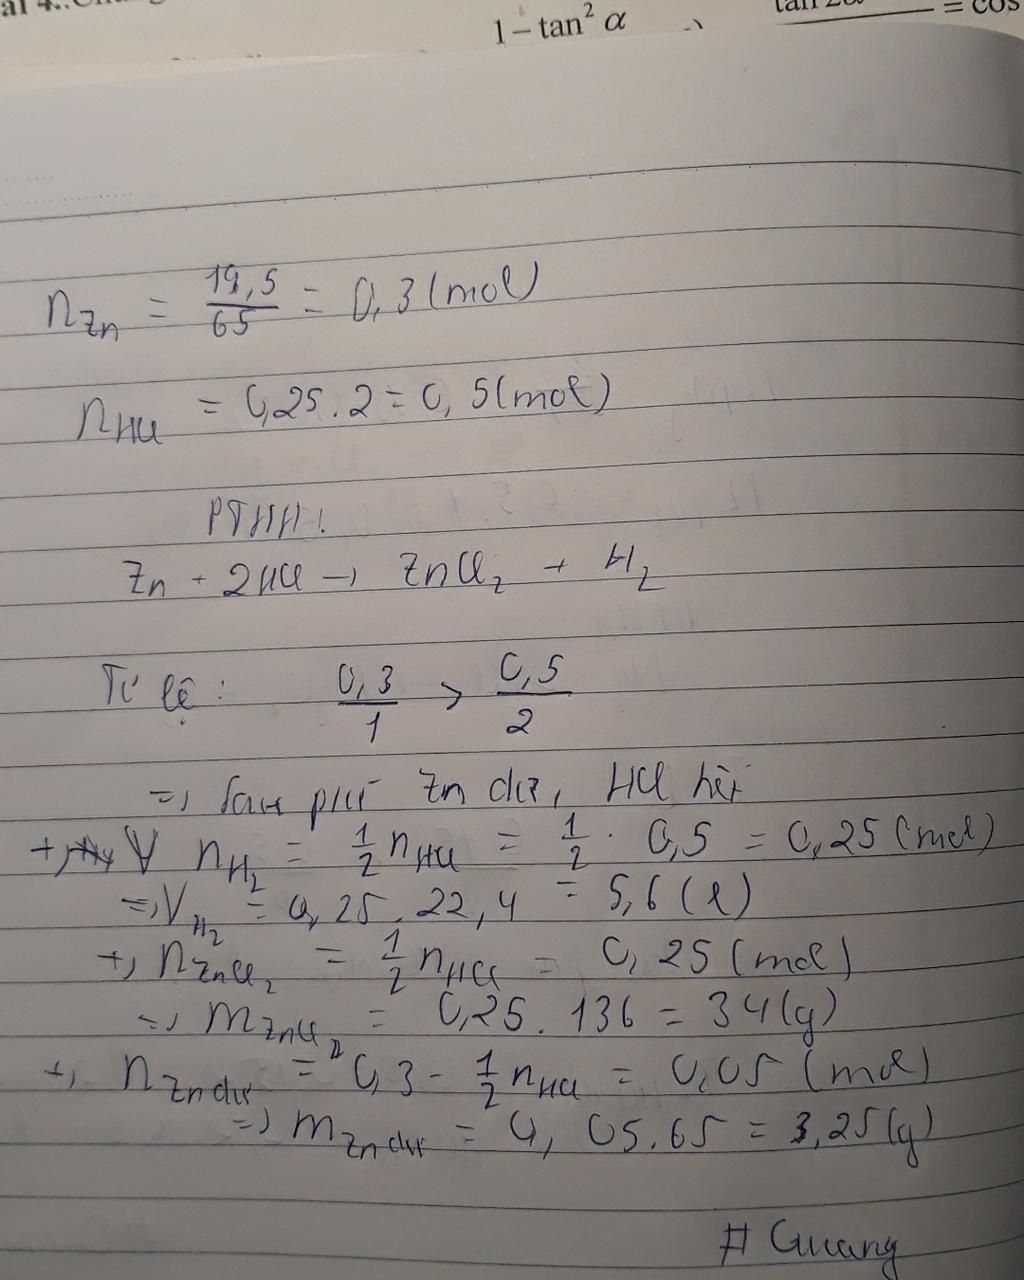 1 – tan² α
= cos
n_Zn = 19,5/65 = 0,3 (mol)
n_HCl = 0,25 . 2 = 0,5 (mol)
PTHH:
Zn + 2HCl → ZnCl₂ + H₂
Tỉ lệ : 0,3/1 > 0,5/2
=> Sau pứ Zn dư, HCl hết
+, n_H₂ = 1/2 n_HCl = 1/2 . 0,5 = 0,25 (mol)
=> V_H₂ = 0,25 . 22,4 = 5,6 (l)
+, n_ZnCl₂ = 1/2 n_HCl = 0,25 (mol)
=> m_ZnCl₂ = 0,25 . 136 = 34 (g)
+, n_Zn dư = 0,3 - 1/2 n_HCl = 0,05 (mol)
=> m_Zn dư = 0,05 . 65 = 3,25 (g)
# Guang